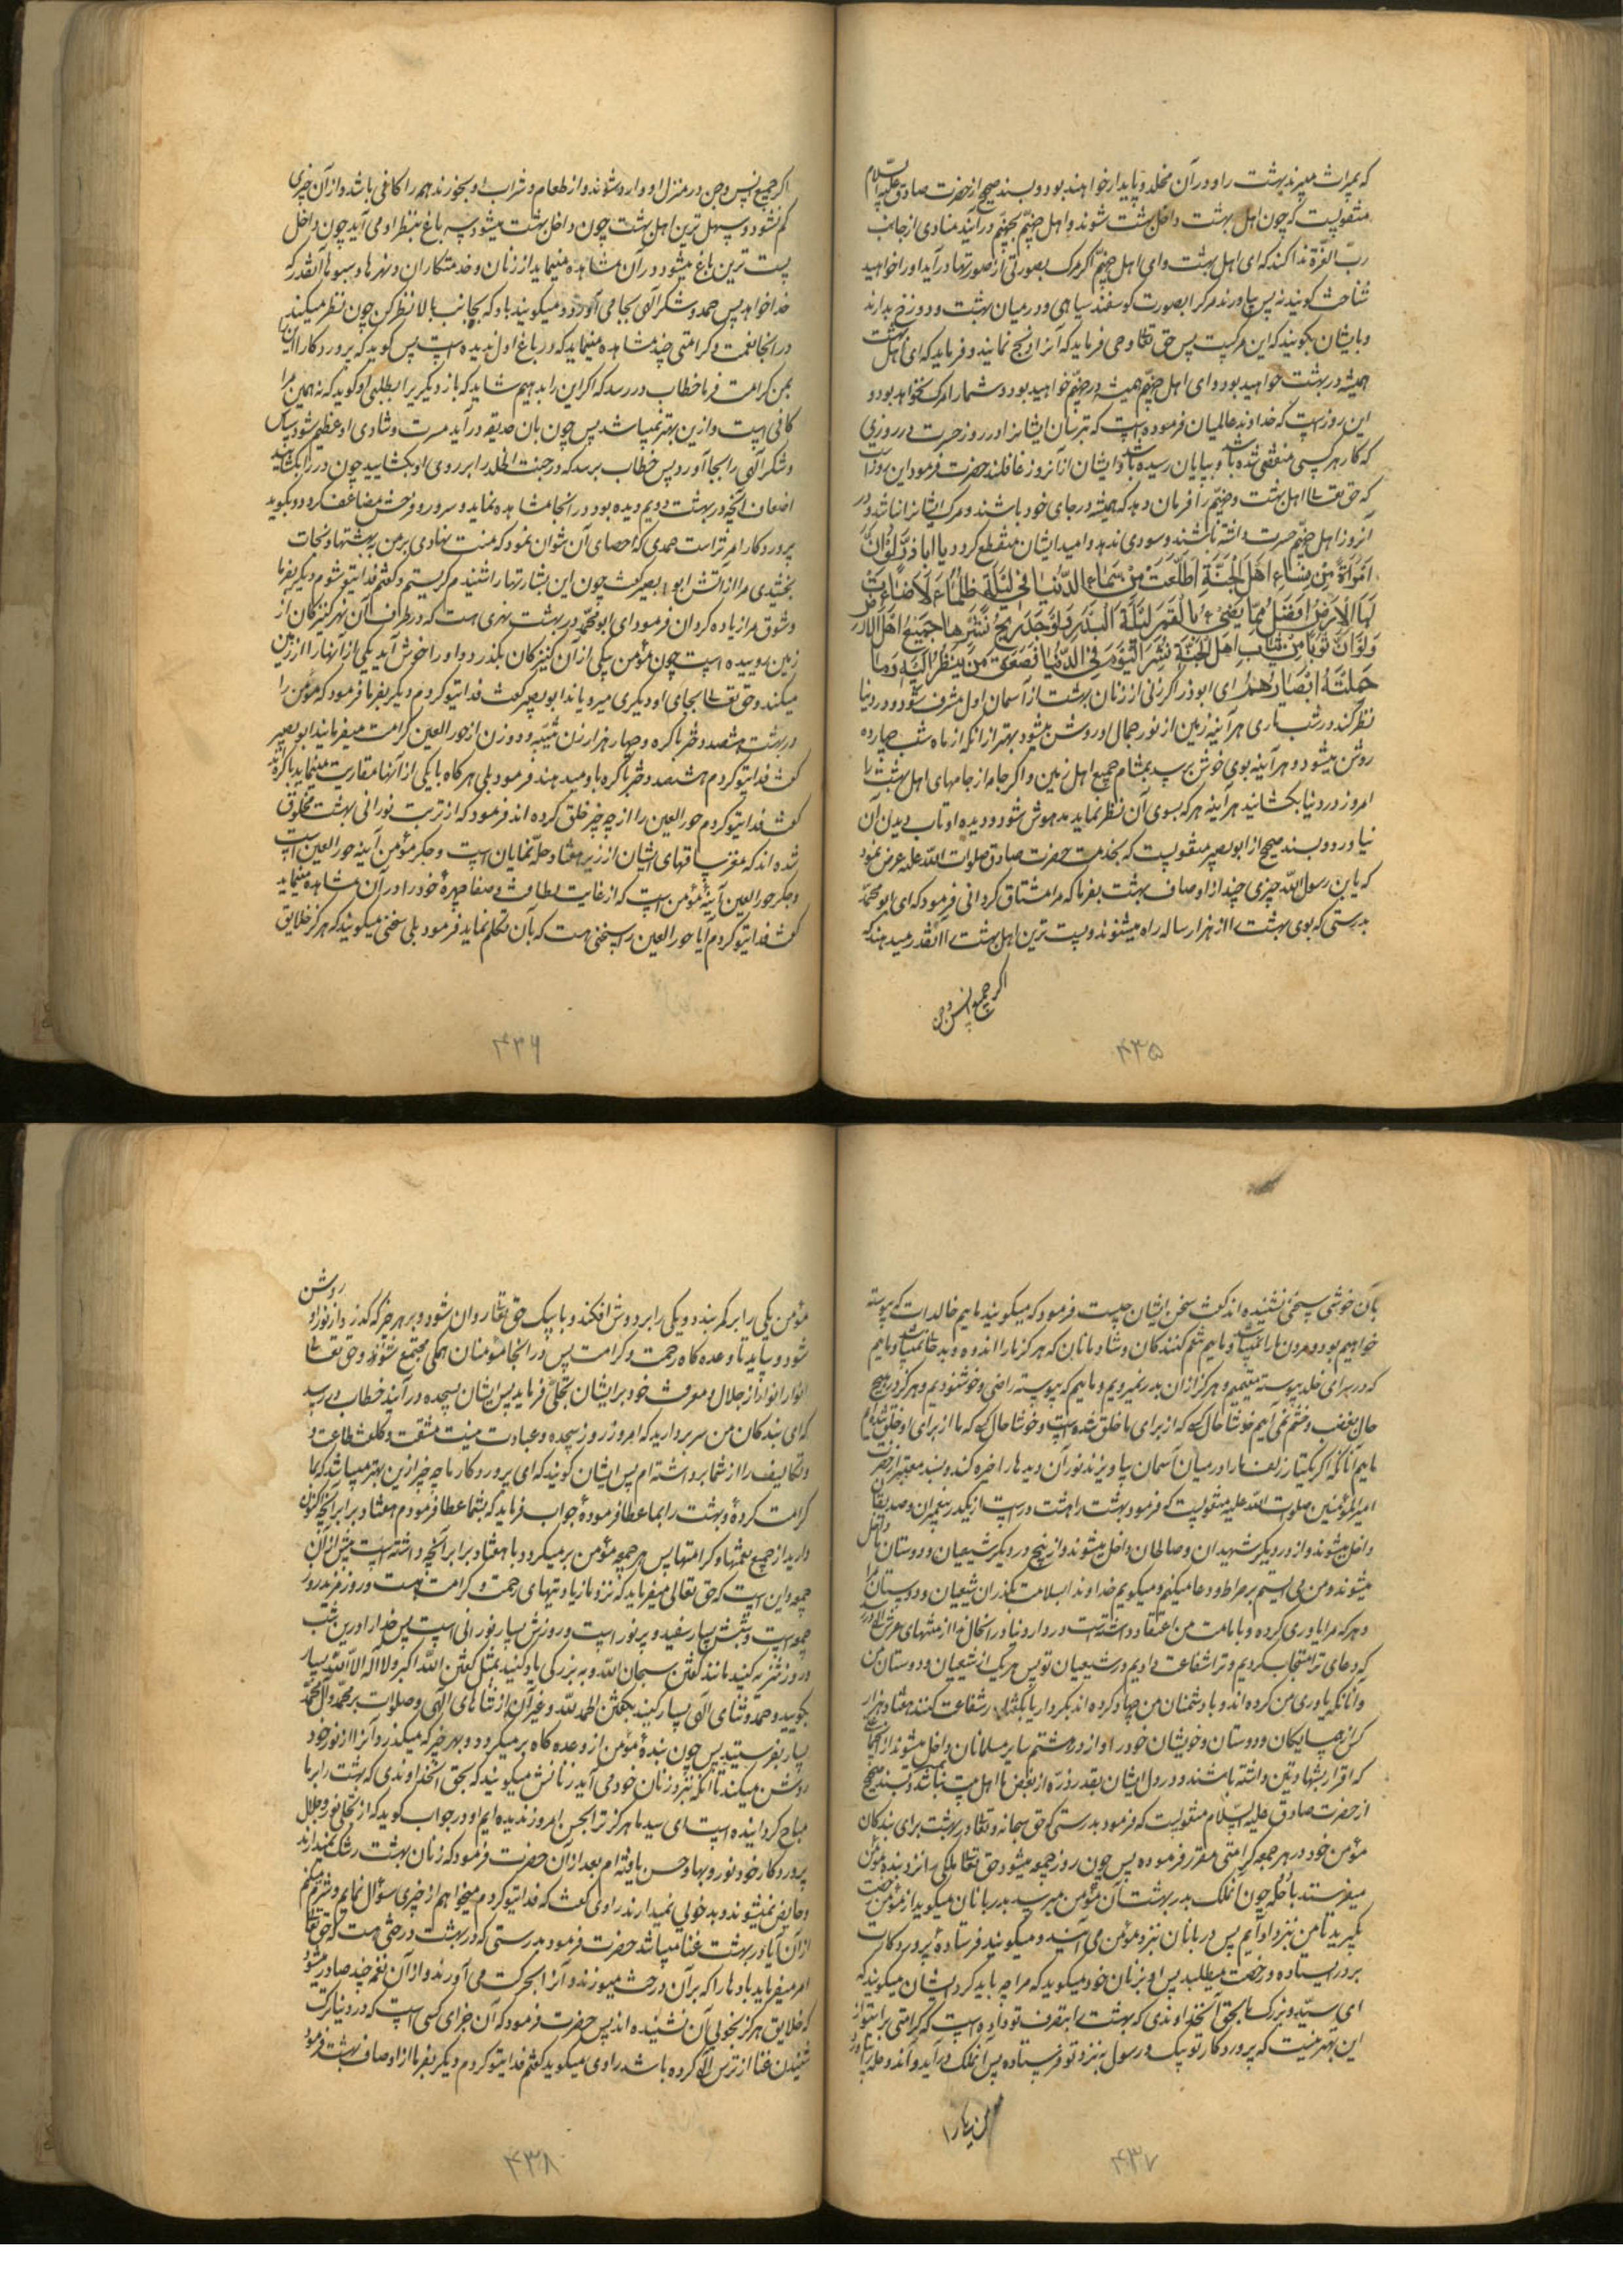 که بمیراث میبرند بهشت را و در آن مخلد و پایدار خواهند بود و بسند صحیح از حضرت صادق علیه السلام
منقولست که چون اهل بهشت داخل بهشت شوند و اهل جهنم بجهنم درآیند منادی از جانب
رب العزة ندا کند که ای اهل بهشت و ای اهل جهنم اگر مرک بصورتی از صورتها درآید او را خواهید
شناخت کویند نه پس بیاورند مرک را بصورت کوسفند سیاهی و در میان بهشت و دوزخ بدارند
و بایشان بکویند که این مرکست پس حق تعالی وحی فرماید که آنرا ذبح نمایند و فرماید که ای اهل بهشت
همیشه در بهشت خواهید بود و ای اهل جهنم همیشه در جهنم خواهید بود و شما را مرک نخواهد بود و
این روزیست که خداوند عالمیان فرموده است که بترسان ایشانرا در روز حسرت در روزی
که کار هر کسی منقضی شده باشد و بپایان رسیده باشد و ایشان از آنروز غافلند حضرت فرمود این روزیست
که حق تعالی اهل بهشت و جهنم را فرمان دهد که همیشه در جای خود باشند و مرک ایشانرا نباشد و در
آنروز اهل جهنم حسرت داشته باشند و سودی ندهد و امید ایشان منقطع کردد یا اباذر و لو ان
امرأة من نساء اهل الجنة اطلعت من سماء الدنیا فی لیلة ظلماء لاضاءت
لها الارض افضل مما یضیء بالقمر لیلة البدر و لوجد ریح نشرها جمیع اهل الارض
و لو ان ثوبا من ثیاب اهل الجنة نشر الیوم فی الدنیا لصعق من ینظر الیه و ما
حملته ابصارهم ای ابوذر اکر زنی از زنان بهشت از آسمان اول مشرف شود و در دنیا
نظر کند در شب تاری هر آینه زمین از نور جمال او روشن میشود بهتر از آنکه از ماه شب چهارده
روشن میشود و هر آینه بوی خوش برسد بمشام جمیع اهل زمین و اکر جامه از جامهای اهل بهشت را
امروز در دنیا بکشایند هر آینه هر که بسوی آن نظر نماید مدهوش شود و دیده او تاب دیدن آن
نیاورد و بسند صحیح از ابو بصیر منقولست که بخدمت حضرت صادق صلوات الله علیه عرض نمود
که یابن رسول الله چیزی چند از اوصاف بهشت بفرما که مرا مشتاق کردانی فرمود که ای ابو محمد
بدرستی که بوی بهشت را از هزار ساله راه میشنوند و پست ترین اهل بهشت را آنقدر میدهند که
اکر جمیع انس و جن
۴۳۵
اکر جمیع انس و جن در منزل او وارد شوند و از طعام و شراب او بخورند همه را کافی باشد و از آن چیزی
کم نشود و سهل ترین اهل بهشت چون داخل بهشت میشود سه باغ بنظر او می آید چون داخل
پست ترین باغ میشود در آن مشاهده مینماید از زنان و خدمتکاران و نهرها و میوها آنقدر که
خدا خواهد پس حمد و شکر الهی بجا می آورد و میکویند باو که بجانب بالا نظر کن چون نظر میکند
در آنجا نعمت و کرامتی چند مشاهده مینماید که در باغ اول ندیده است پس کوید که پروردکارا این را
بمن کرامت فرما خطاب در رسد که اکر این را بدهیم شاید که باز دیکری را بطلبی او کوید که نه همین مرا
کافی است و ازین بهتر نمیباشد پس چون بان حدیقه درآید مسرت و شادی او عظیم شود سپاس
و شکر الهی را بجا آورد پس خطاب برسد که در جنت الخلد را بر روی او بکشایید چون در را بکشاید
اضعاف آنچه در بهشت دویم دیده بود در آنجا مشاهده نماید و سرور و فرحش مضاعف کردد و بکوید
پروردکارا مر تراست حمدی که احصای آن نتوان نمود که منت نهادی بر من ببهشتها و نجات
بخشیدی مرا از آتش ابو بصیر کفت چون این بشارتها را شنیدم کریستم و کفتم فدای تو شوم دیکر بفرما
و شوق مرا زیاده کردان فرمود ای ابو محمد در بهشت نهری هست که در طراف آن نهر کنیزکان از
زمین روییده است چون مؤمن بیکی از آن کنیزکان بکذرد و او را خوش آید یکی از آنها را از زمین
میکند و حق تعالی بجای او دیکری میرویاند ابو بصیر کفت فدای تو کردم دیکر بفرما فرمود که مؤمن را
در بهشت هشتصد دختر باکره و چهار هزار زن ثیبه و دو زن از حور العین کرامت میفرمایند ابو بصیر
کفت فدای تو کردم هشتصد دختر باکره باو میدهند فرمود بلی هر کاه با یکی از آنها مقاربت مینماید باکره اند
کفت فدای تو کردم حور العین را از چه چیز خلق کرده اند فرمود که از تربت نورانی بهشت مخلوق
شده اند که مغز ساقهای ایشان از زیر هفتاد حله نمایان است و جکر مؤمن آینه حور العین است
و جکر حور العین آینه مؤمن است که از غایت لطافت و صفا چهره خود را در آن مشاهده مینماید
کفت فدای تو کردم آیا حور العین را سخنی هست که بآن تکلم نماید فرمود بلی سخنی میکویند که هرکز خلایق
۴۳۶
بآن خوشی سخنی نشنیده اند کفت سخن ایشان چیست فرمود که میکویند ماییم خالدات که پیوسته
خواهیم بود و مردن ما را نمیباشد و ماییم تنعم کنندکان و شادمانان که هرکز ما را اندوه و بدحالی نمیباشد و ماییم
که در سرای خلد پیوسته مقیمیم و هرکز از آن بدر نمیرویم و ماییم که پیوسته راضی و خوشنودیم و هرکز در هیچ
حال بغضب و خشم نمی آییم خوشا حال کسی که از برای ما خلق شده است و خوشا حال کسی که ما از برای او خلق شده ایم
ماییم آنان که اکر یکتار زلف ما را در میان آسمان بیاویزند نور آن دیدها را خیره کند و بسند معتبر از حضرت
امیر المؤمنین صلوات الله علیه منقولست که فرمود بهشت را هشت در است از یکدر پیغمبران و صدیقان
داخل میشوند و از در دیکر شهیدان و صالحان داخل میشوند و از پنج در دیکر شیعیان و دوستان ما داخل
میشوند و من می ایستم بر صراط و دعا میکنم و میکویم خداوندا بسلامت بکذران شیعیان و دوستان مرا
و هر که مرا یاوری کرده و بامامت من اعتقاد داشته است در دار دنیا در آنحال ندا از منتهای عرش الهی در رسد
که دعای ترا مستجاب کردیم و ترا شفاعت دادیم در شیعیان تو پس هر یک از شیعیان و دوستان من
و آنانکه یاوری من کرده اند و با دشمنان من جهاد کرده اند بکردار یا بکفتار شفاعت کنند هفتاد هزار
کس از همسایکان و دوستان و خویشان خود را و از در هشتم سایر مسلمانان داخل میشوند از آنجماعتی
که اقرار بشهادتین داشته باشند و در دل ایشان بقدر ذره از بغض ما اهل بیت نباشد و بسند صحیح
از حضرت صادق علیه السلام منقولست که فرمود بدرستی که حق سبحانه و تعالی در بهشت برای بندکان
مؤمن خود در هر جمعه کرامتی مقرر فرموده پس چون روز جمعه میشود حق تعالی ملکی را نزد بنده مؤمن
میفرستد با حله چون آنملک بدر بهشت آن مؤمن میرسد بدربانان میکوید از مؤمن رخصت
بکیرید تا من بنزد او آیم پس دربانان بنزد مؤمن می آیند و میکویند فرستاده پروردکارت
بر در ایستاده و رخصت میطلبد پس او بزنان خود میکوید که مرا چه باید کرد ایشان میکویند که
ای سید و بزرک ما بحق آنخداوندی که بهشت را بتصرف تو داده است که کرامتی برای تو از
این بهتر نیست که پروردکار تو پیک و رسول بنزد تو فرستاده پس آنملک درآید و آندو حله را بیاورد
۴۳۷
مؤمن یکی را بر کمر بندد و یکی را بر دوش افکند و با پیک حق تعالی روان شود و بر هر چیز که کذرد از نور او روشن
شود و بیاید تا وعده کاه رحمت و کرامت پس در آنجا مؤمنان همکی مجتمع شوند و حق تعالی
انوار از جلال و معرفت خود بر ایشان تجلی فرماید پس ایشان بسجده درآیند خطاب در رسد
که ای بندکان من سر بردارید که امروز روز سجده و عبادت نیست مشقت و کلفت طاعت و
و تکالیف را از شما برداشته ام پس ایشان کویند که ای پروردکار ما چه چیز ازین بهتر میباشد که بما
کرامت کرده و بهشت را بما عطا فرموده جواب فرماید که بشما عطا فرمودم هفتاد برابر آنچه اکنون
دارید از جمیع نعمتها و کرامتها پس هر جمعه مؤمن برمیکردد با هفتاد برابر آنچه داشته است پیش از آن
جمعه و این است که حق تعالی میفرماید که نزد ما زیادتیهای رحمت و کرامت هست و روز مزید روز
جمعه است و شبش بسیار سفید و پر نور است و روزش بسیار نورانی است پس خدا را درین شب
و روز تنزیه کنید مانند کفتن سبحان الله و به بزرکی یاد کنید بمثل کفتن الله اکبر و لا اله الا الله بسیار
بکویید و حمد و ثنای الهی بسیار کنید بکفتن الحمد لله و غیر آن از ثناهای الهی و صلوات بر محمد و آل محمد
بسیار بفرستید پس چون بنده مؤمن از وعده کاه برمیکردد و بهر چیز که میکذرد آنرا از نور خود
روشن میکند تا آنکه بنزد زنان خود می آید زنانش میکویند که بحق آنخداوندی که بهشت را بر ما
مباح کردانیده است ای سید ما هرکز ترا بحسن امروز ندیده ایم او در جواب کوید که از تجلی نور جلال
پروردکار خود نور و بها و حسن یافته ام بعد از آن حضرت فرمود که زنان بهشت رشک نمیدارند
و حایض نمیشوند و بدخویی نمیدارند راوی کفت که فدای تو کردم میخواهم از چیزی سؤال نمایم و شرم میکنم
از آن آیا در بهشت غنا میباشد حضرت فرمود بدرستی که در بهشت درختی هست که حق تعالی
امر میفرماید بادها را که بر آن درخت میوزند و آنرا بحرکت می آورند و از آن نغمه چند صادر میشود
که خلایق هرکز بخوبی آن نشنیده اند پس حضرت فرمود که آن جزای کسی است که در دنیا ترک
شنیدن غنا از ترس الهی کرده باشد راوی میکوید کفتم فدای تو کردم دیکر بفرما از اوصاف بهشت فرمود
۴۳۸